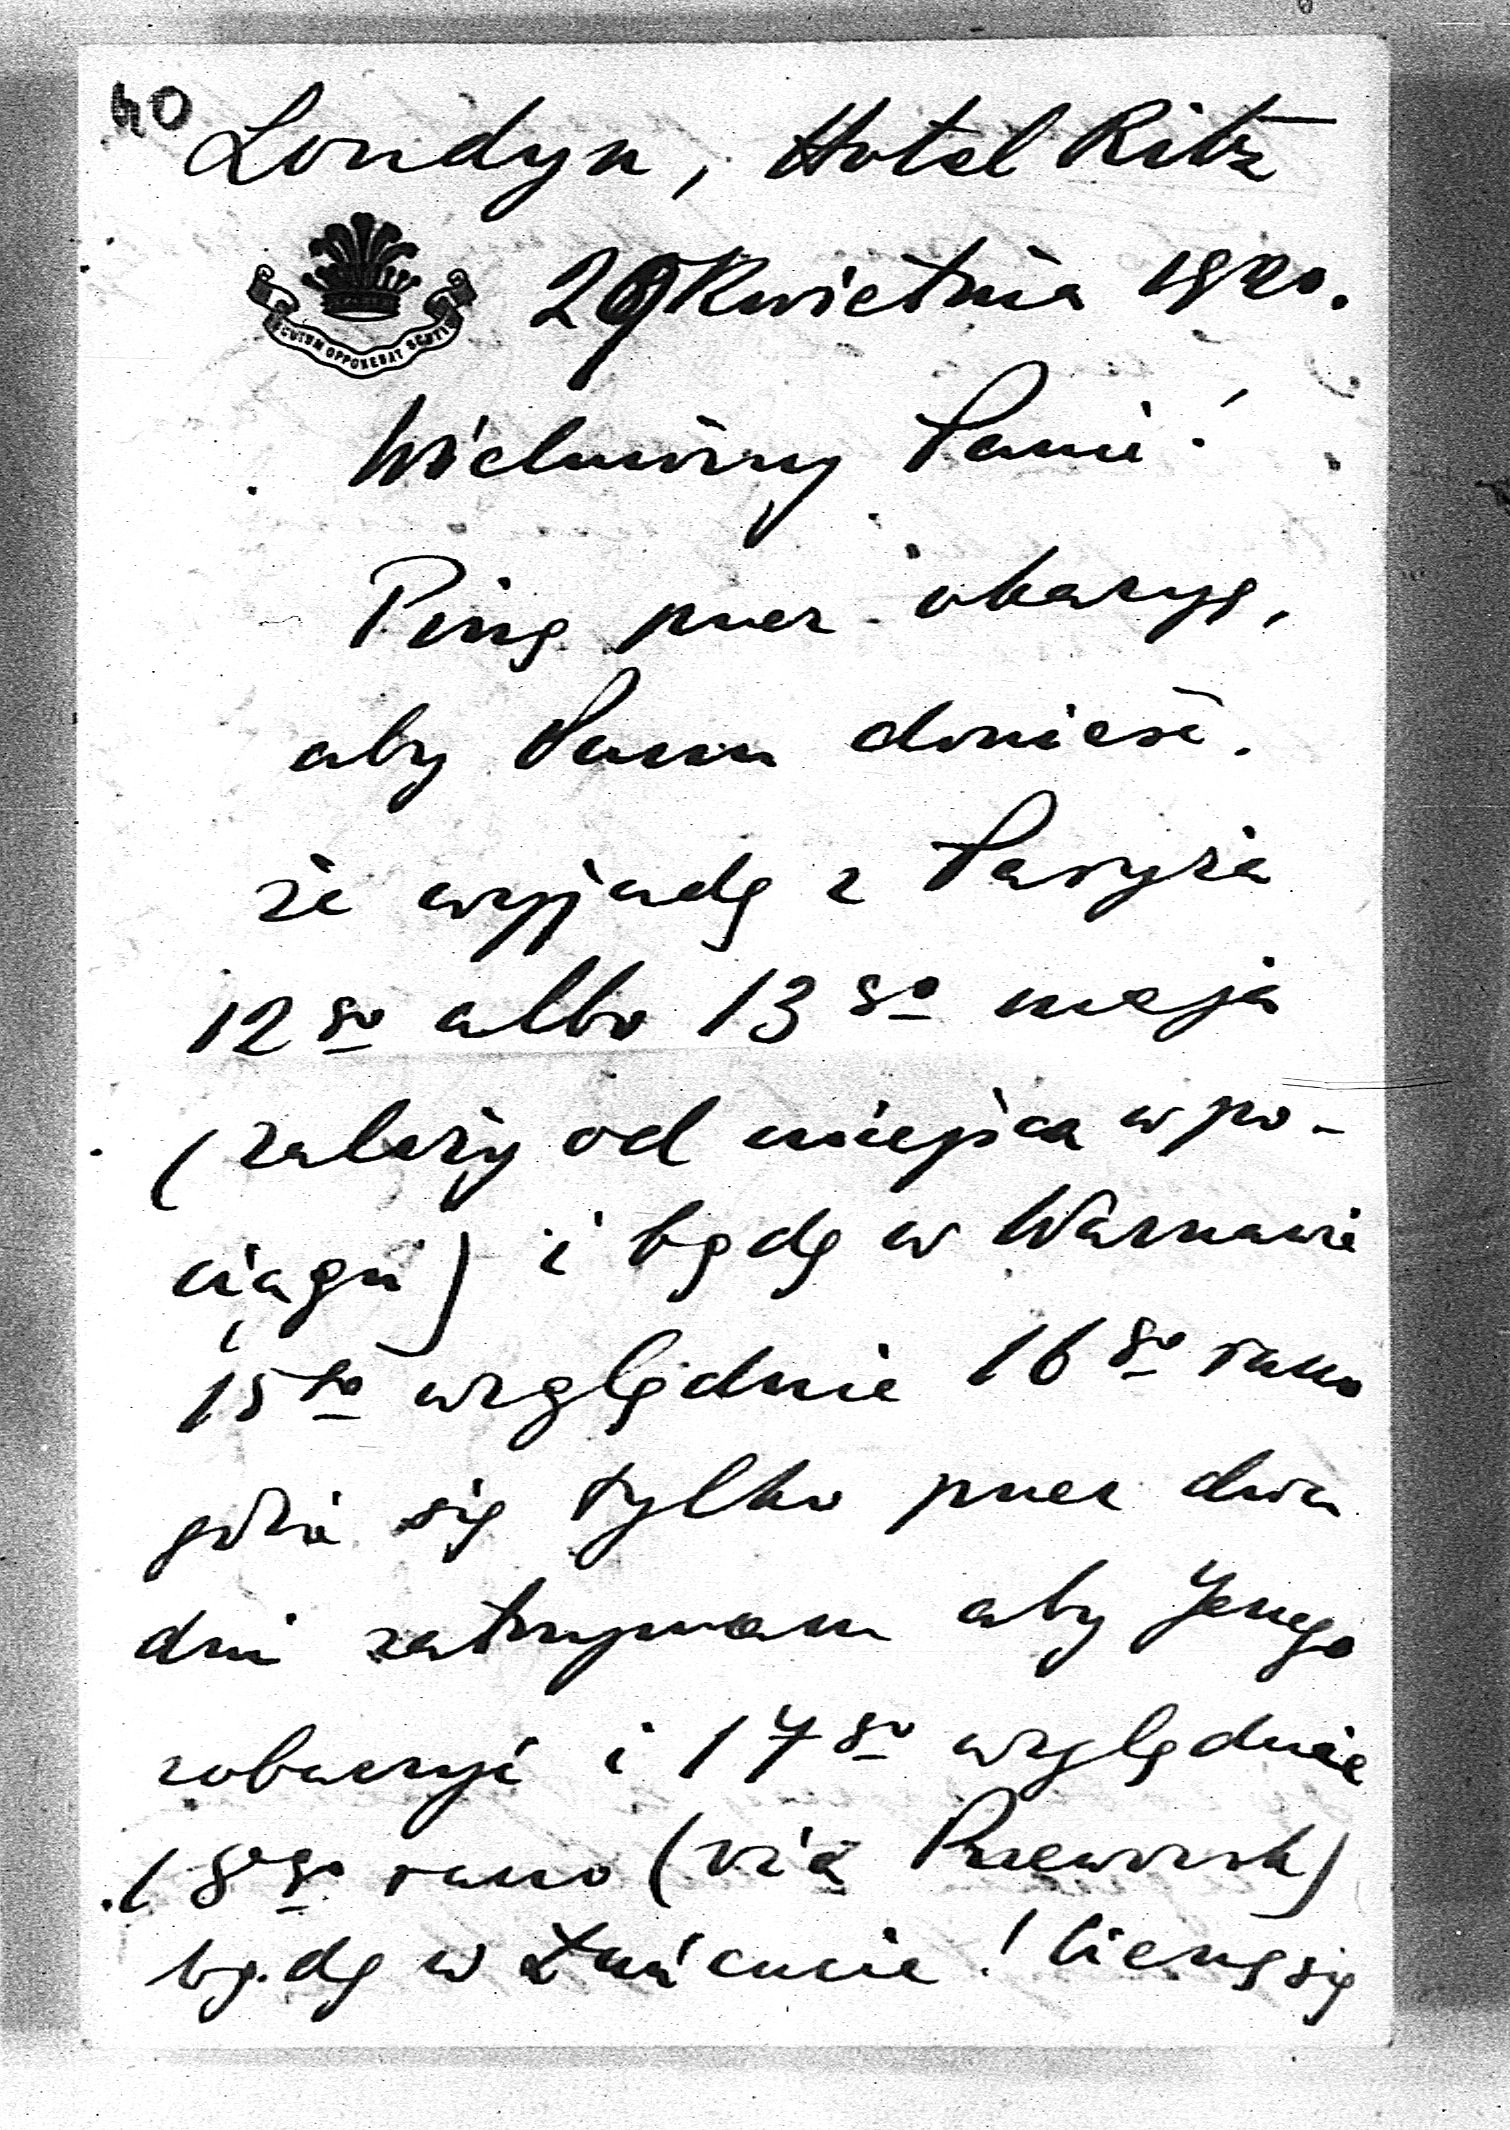 40
Londyn, Hotel Ritz
SCUTUM OPPONEBAT SCUTIS
29 Kwietnia 1920.
Wielmożny Panie!
Piszę przez okazyę,
aby Panu donieść,
że wyjadę z Paryża
12go albo 13go maja
(zależy od miejsca w po-
ciągu) i będę w Warszawie
15go względnie 16go rano
gdzie się tylko przez dwa
dni zatrzymam aby Jerzego
zobaczyć i 17go względnie
18go rano (via Przeworsk)
będę w Łańcucie! Cieszę się